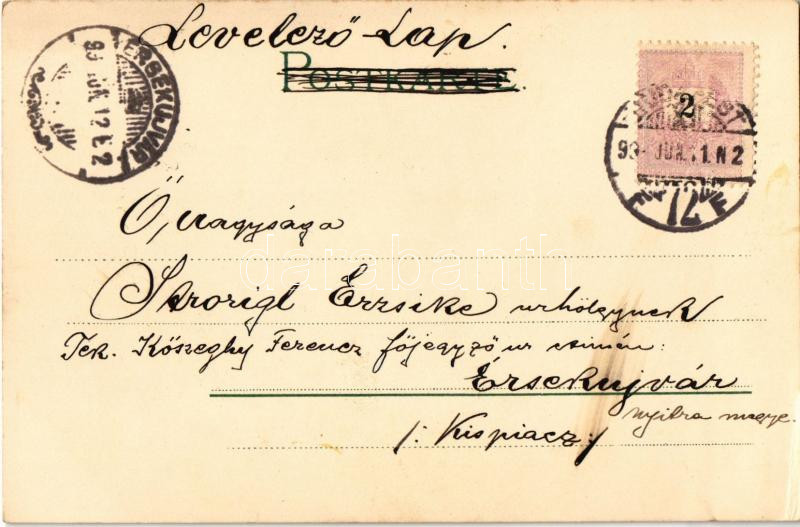 Levelező-Lap.
POSTKARTE.
ÉRSEKÚJVÁR
2
BUDAPEST
72
Ő, nagysága
Strorigl Erzsike urhölgynek
Tek. Kőszeghy Ferencz főjegyző ur czimén:
Érsekujvár
nyitra megye.
/: Kispiacz :/
darabanth